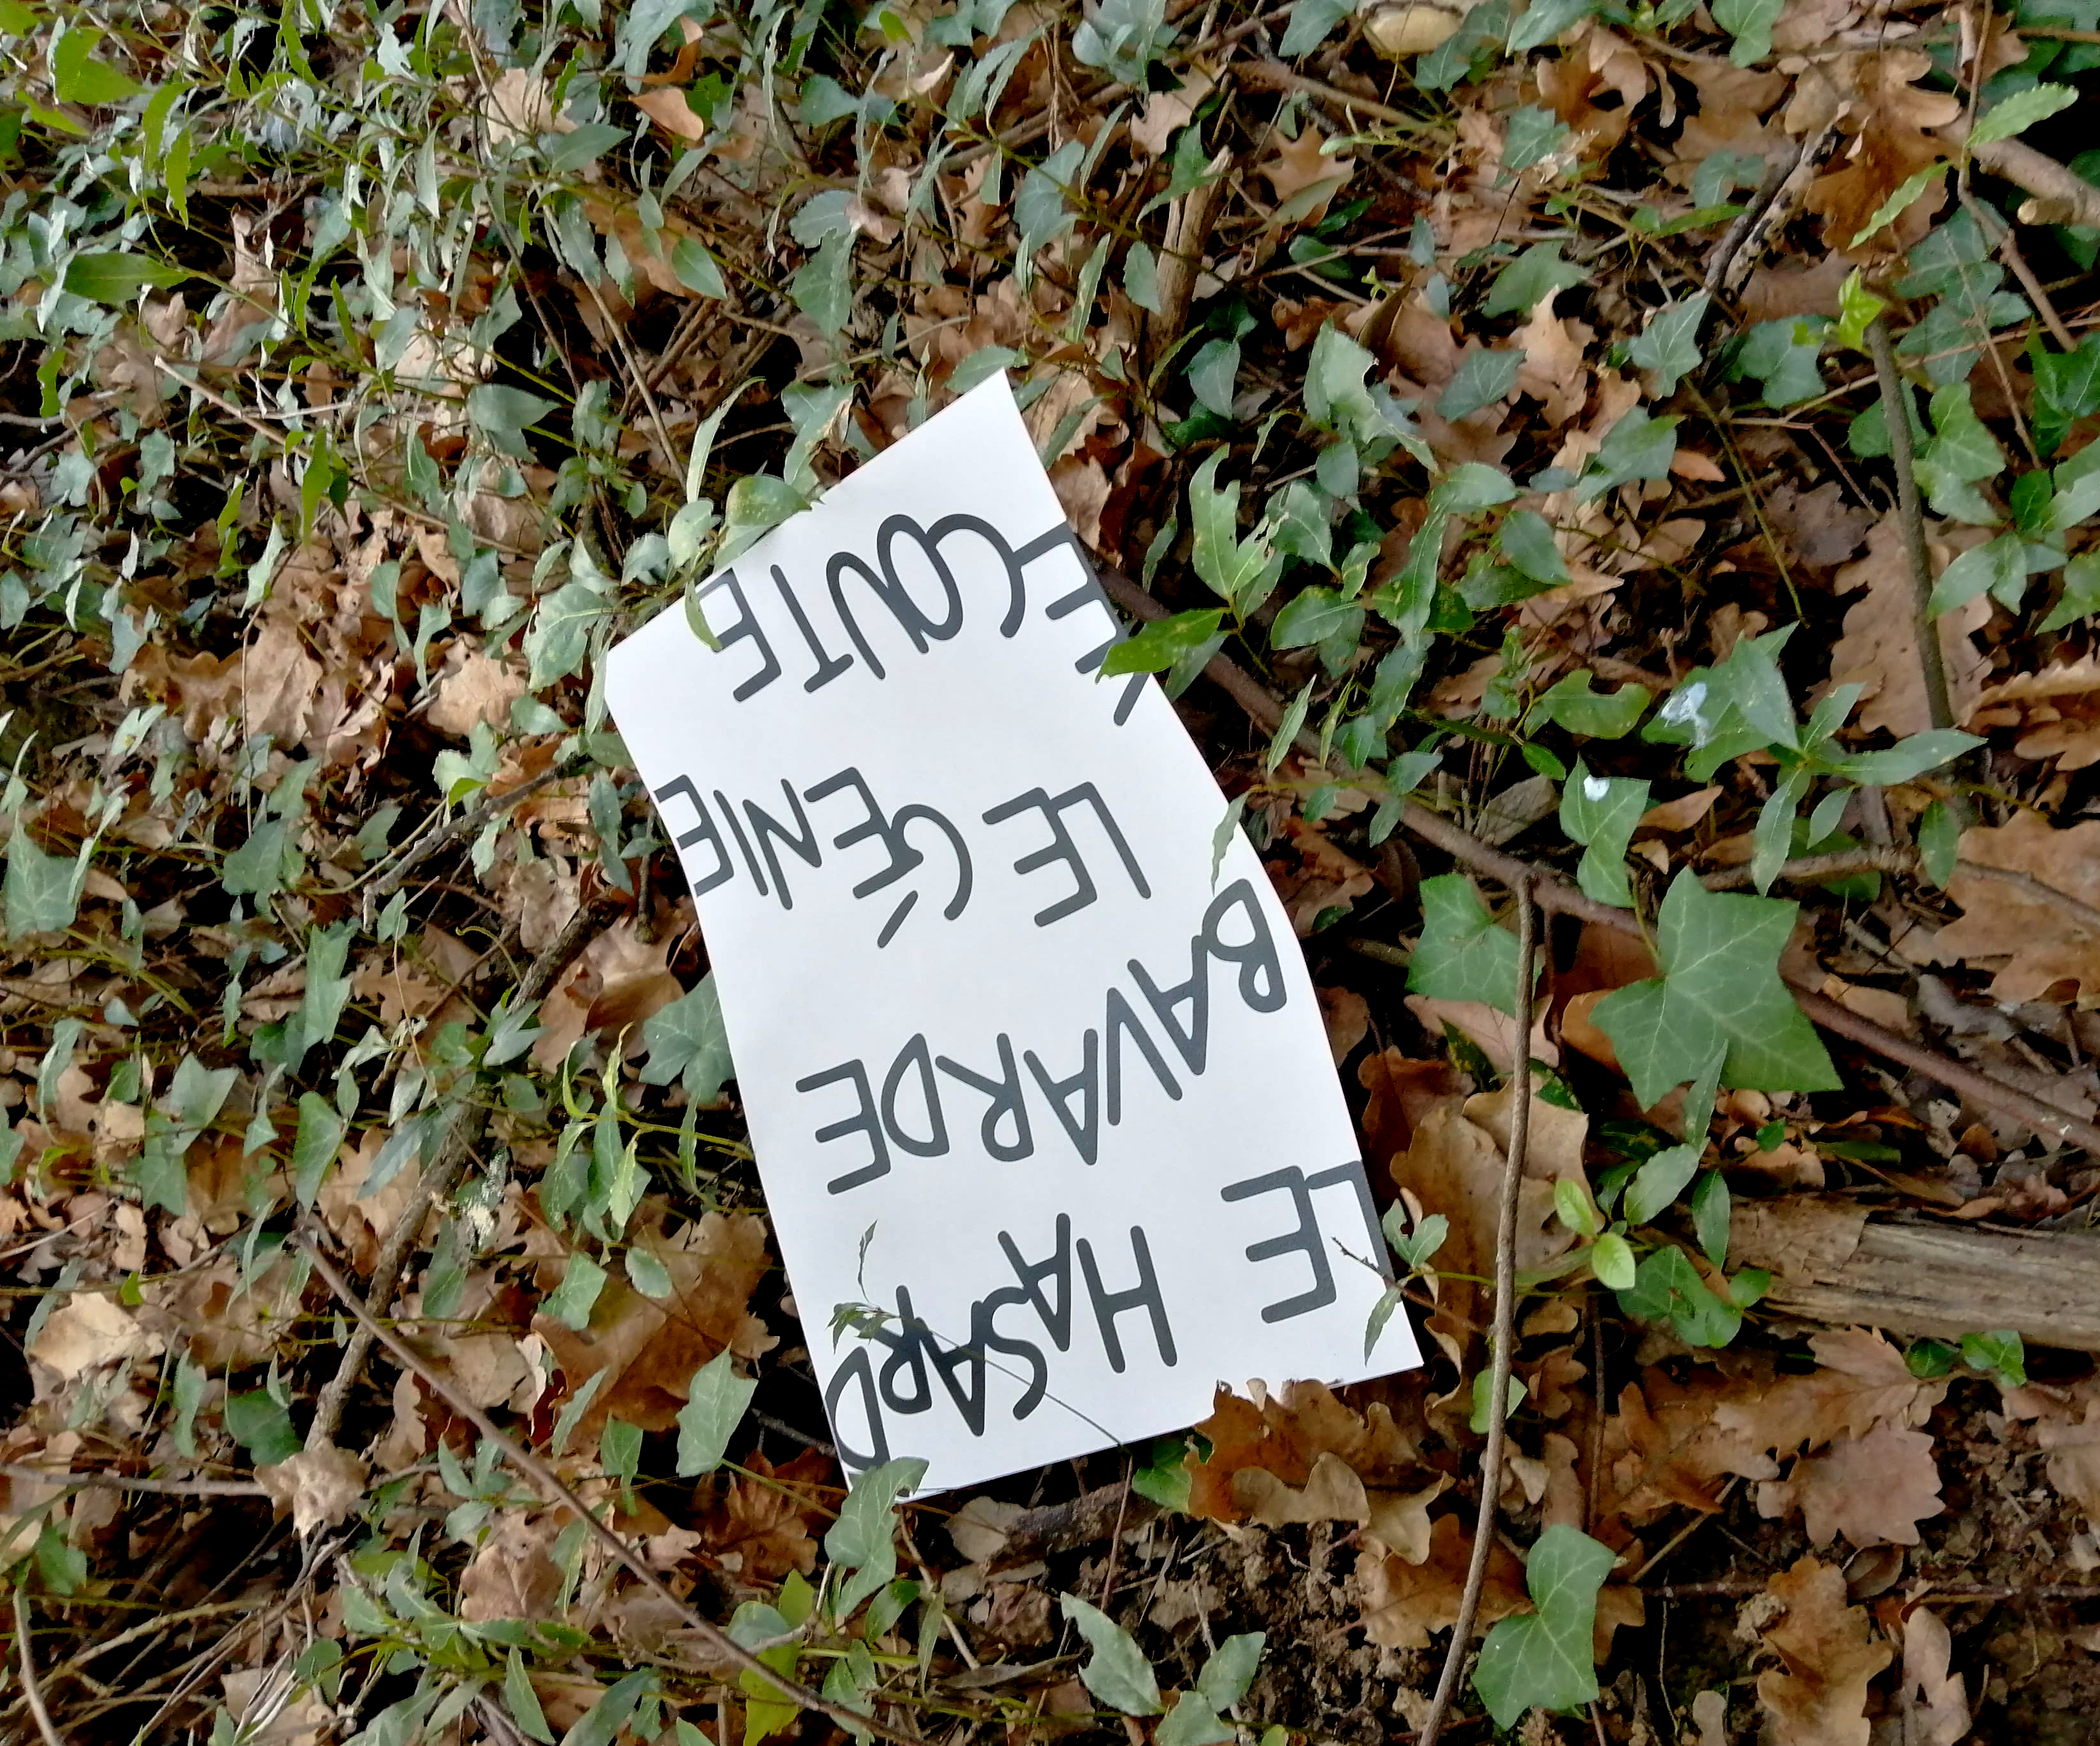 LE HASARD
BAVARDE
LE GÉNIE
ÉCOUTE